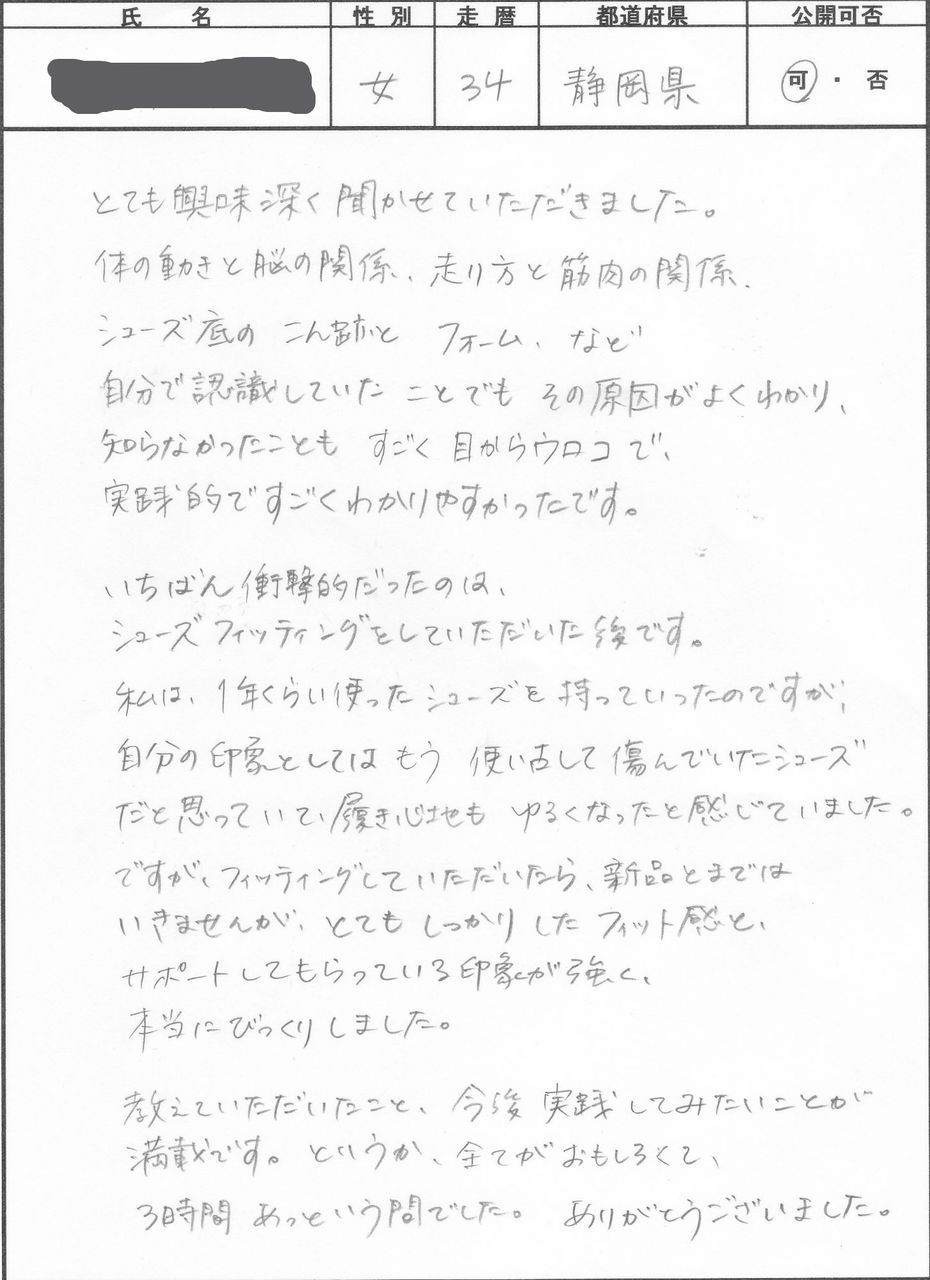 氏 名 性 別 走 暦 都道府県 公開可否
女 34 静岡県 可・否
とても興味深く聞かせていただきました。
体の動きと脳の関係、走り方と筋肉の関係、
シューズ底のこん跡と フォーム、など
自分で認識していた ことでも その原因がよくわかり、
知らなかったことも すごく 目からウロコで、
実践的ですごくわかりやすかったです。
いちばん衝撃的だったのは、
シューズフィッティングをしていただいた後です。
私は、1年くらい使ったシューズを持っていったのですが、
自分の印象としてはもう 使い古して傷んでいたシューズ
だと思っていて、履き心地も ゆるくなったと感じていました。
ですが、フィッティングしていただいたら、新品とまでは
いきませんが、とてもしっかりしたフィット感と、
サポートしてもらっている印象が強く、
本当にびっくりしました。
教えていただいたこと、今後実践してみたいことが
満載です。というか、全てがおもしろくて、
3時間あっという間でした。 ありがとうございました。